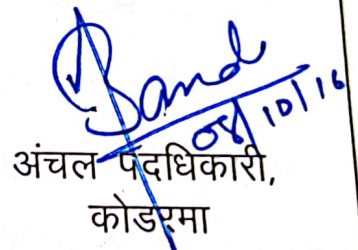 08/10/16
अंचल पदधिकारी,
कोडरमा